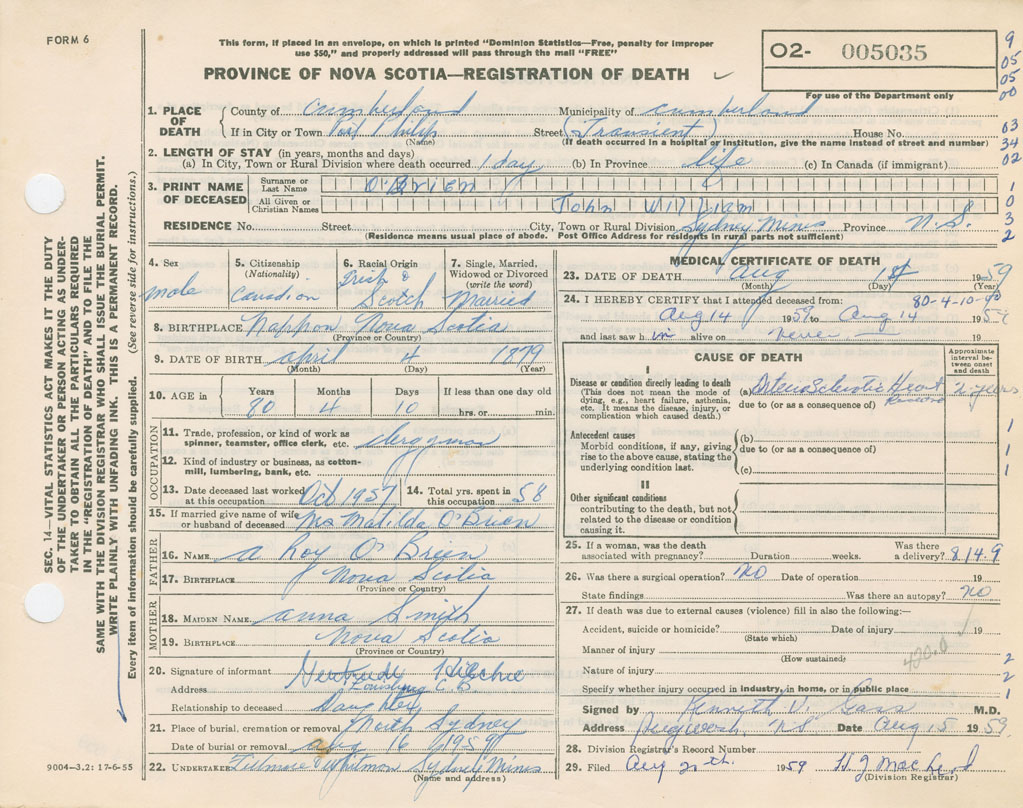 FORM 6
This form, if placed in an envelope, on which is printed "Dominion Statistics—Free, penalty for improper
use $50," and properly addressed will pass through the mail "FREE"
PROVINCE OF NOVA SCOTIA—REGISTRATION OF DEATH
02- 005035
For use of the Department only
9
05
05
00
03
34
02
1
0
3
2
SEC. 14—VITAL STATISTICS ACT MAKES IT THE DUTY
OF THE UNDERTAKER OR PERSON ACTING AS UNDER-
TAKER TO OBTAIN ALL THE PARTICULARS REQUIRED
IN THE "REGISTRATION OF DEATH" AND TO FILE THE
SAME WITH THE DIVISION REGISTRAR WHO SHALL ISSUE THE BURIAL PERMIT.
WRITE PLAINLY WITH UNFADING INK. THIS IS A PERMANENT RECORD.
Every item of information should be carefully supplied. (See reverse side for instructions.)
1. PLACE OF DEATH
County of Cumberland Municipality of Cumberland
If in City or Town Port Philip Street (Transient) House No.
(Name) (If death occurred in a hospital or institution, give the name instead of street and number)
2. LENGTH OF STAY (in years, months and days)
(a) In City, Town or Rural Division where death occurred 1 day (b) In Province life (c) In Canada (if immigrant)
3. PRINT NAME OF DECEASED
Surname or Last Name O'Brien
All Given or Christian Names John William
RESIDENCE No. Street City, Town or Rural Division Sydney Mines Province N.S.
(Residence means usual place of abode. Post Office Address for residents in rural parts not sufficient)
4. Sex
male
5. Citizenship (Nationality)
Canadian
6. Racial Origin
Irish & Scotch
7. Single, Married, Widowed or Divorced (write the word)
Married
8. BIRTHPLACE Nappan Nova Scotia
(Province or Country)
9. DATE OF BIRTH April 4 1879
(Month) (Day) (Year)
10. AGE in Years Months Days If less than one day old
80 4 10 hrs. or min.
OCCUPATION
11. Trade, profession, or kind of work as
spinner, teamster, office clerk, etc. Clergyman
12. Kind of industry or business, as cotton-
mill, lumbering, bank, etc.
13. Date deceased last worked at this occupation Oct 1957
14. Total yrs. spent in this occupation 58
15. If married give name of wife
or husband of deceased Mrs Matilda O'Brien
FATHER
16. NAME A Roy O'Brien
17. BIRTHPLACE Nova Scotia
(Province or Country)
MOTHER
18. MAIDEN NAME Anna Smith
19. BIRTHPLACE Nova Scotia
(Province or Country)
20. Signature of informant Gertrude
Address Louisburg C.B.
Relationship to deceased Daughter
21. Place of burial, cremation or removal North Sydney
Date of burial or removal Aug 16 1959
22. UNDERTAKER Fillmore & Whitman Sydney Mines
(Name and address)
9004—3.2: 17-6-55
MEDICAL CERTIFICATE OF DEATH
23. DATE OF DEATH Aug 1959
(Month) (Day) (Year)
24. I HEREBY CERTIFY that I attended deceased from: 80-4-10-
Aug 14 1959 to Aug 14 1959
and last saw h im alive on never 19
CAUSE OF DEATH
Approximate interval between onset and death
I
Disease or condition directly leading to death
(This does not mean the mode of
dying, e.g., heart failure, asthenia,
etc. It means the disease, injury, or
complication which caused death.)
(a) Arteriosclerotic Heart 2 years
due to (or as a consequence of)
Antecedent causes
Morbid conditions, if any, giving
rise to the above cause, stating the
underlying condition last.
(b)
due to (or as a consequence of)
(c)
1
1
1
II
Other significant conditions
contributing to the death, but not
related to the disease or condition
causing it.
25. If a woman, was the death
associated with pregnancy? Duration weeks. Was there a delivery? 814.9
26. Was there a surgical operation? No Date of operation 19
State findings Was there an autopsy? No
27. If death was due to external causes (violence) fill in also the following:—
Accident, suicide or homicide? Date of injury 19
(State which)
Manner of injury
(How sustained) 420.0
Nature of injury
Specify whether injury occurred in industry, in home, or in public place
2
2
1
Signed by Kenneth V. Gass M.D.
Address Pugwash, N.S. Date Aug 15 1959.
28. Division Registrar's Record Number
29. Filed Aug 20th. 1959 H. J. MacLeod
(Division Registrar)